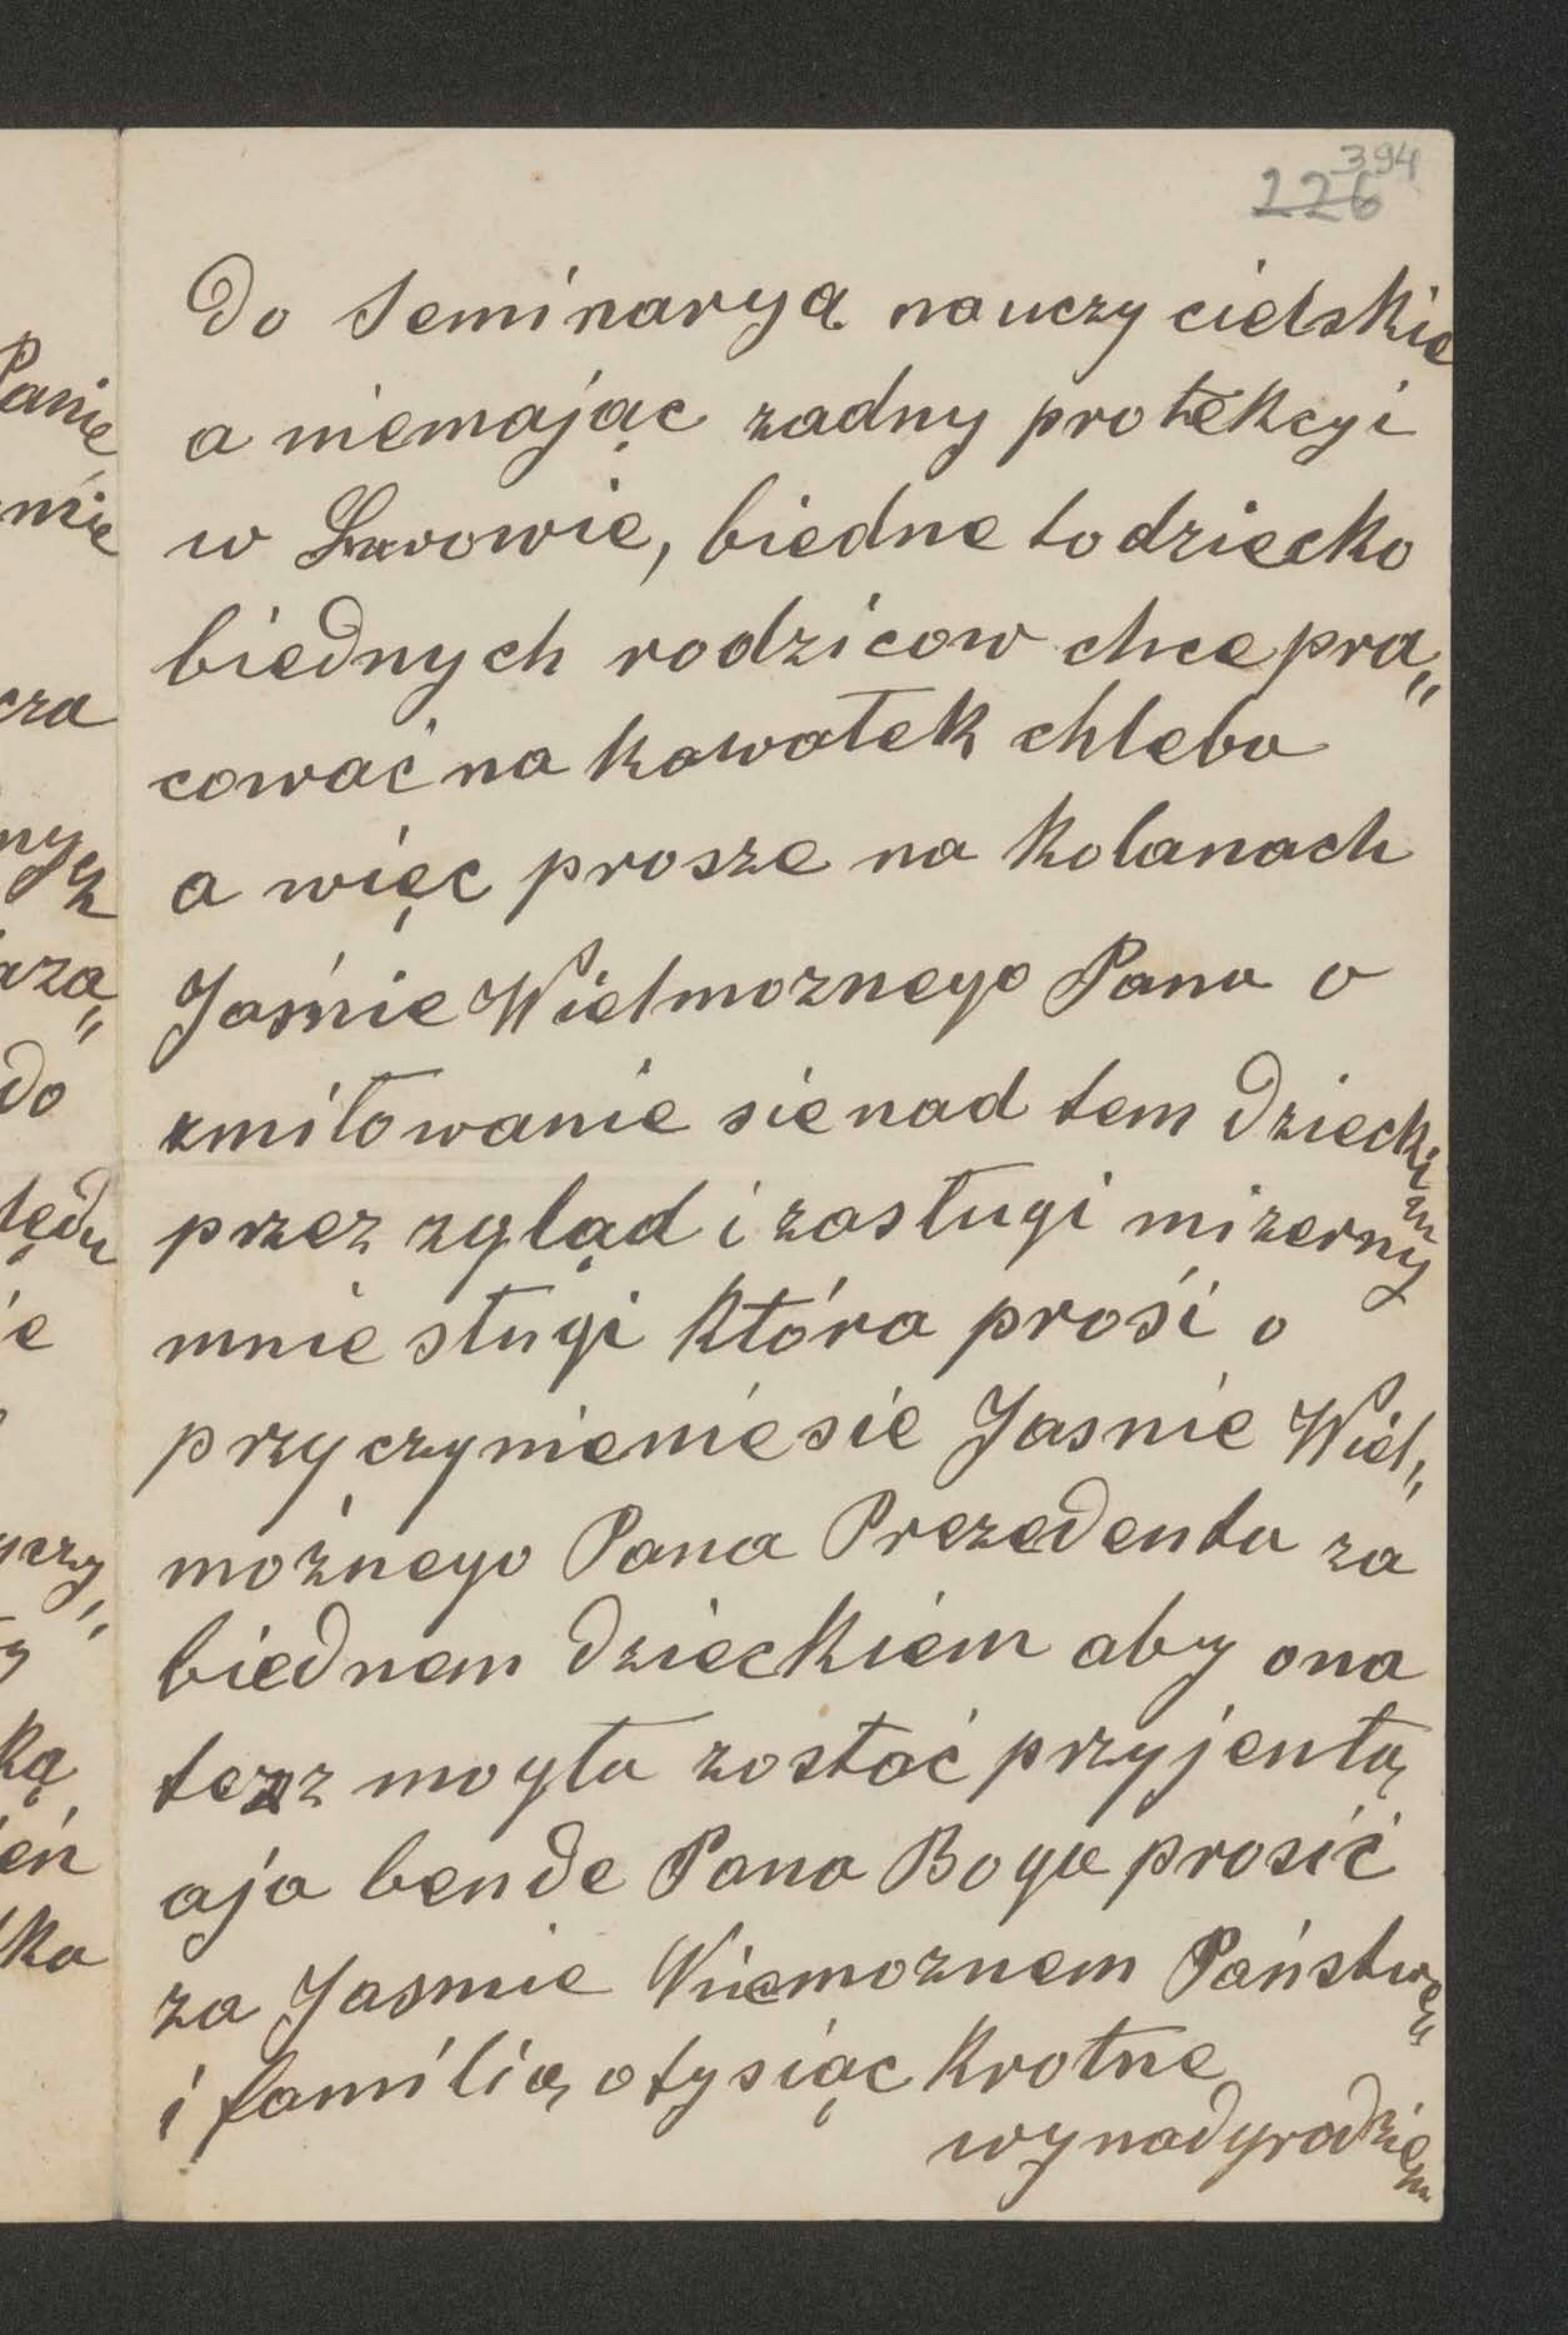 394
226
Do Seminarya nauczycielskie
a niemając zadny protekcyi
w Lwowie, biedne to dziecko
biednych rodzicow chce pra„
cować na kawałek chleba
a więc prosze na kolanach
Jaśnie Wielmoznego Pana o
zmiłowanie sie nad tem dzieckiem
przez zgląd i zasługi mizerny
mnie sługi która prosi o
przyczynienie sie Jasnie Wiel„
możnego Pana Prezedenta za
biednem dzieckiem aby ona
tezz mogła zostać przyjentą
a ja bende Pana Boga prosić
za Jasnie Wiemoznem Państwe„
i familią o tysiąc krotne
wynadgrodziem
Panie
mie
cza
nych
aza„
do
lędu
ie
yczy„
ką
eń
ka